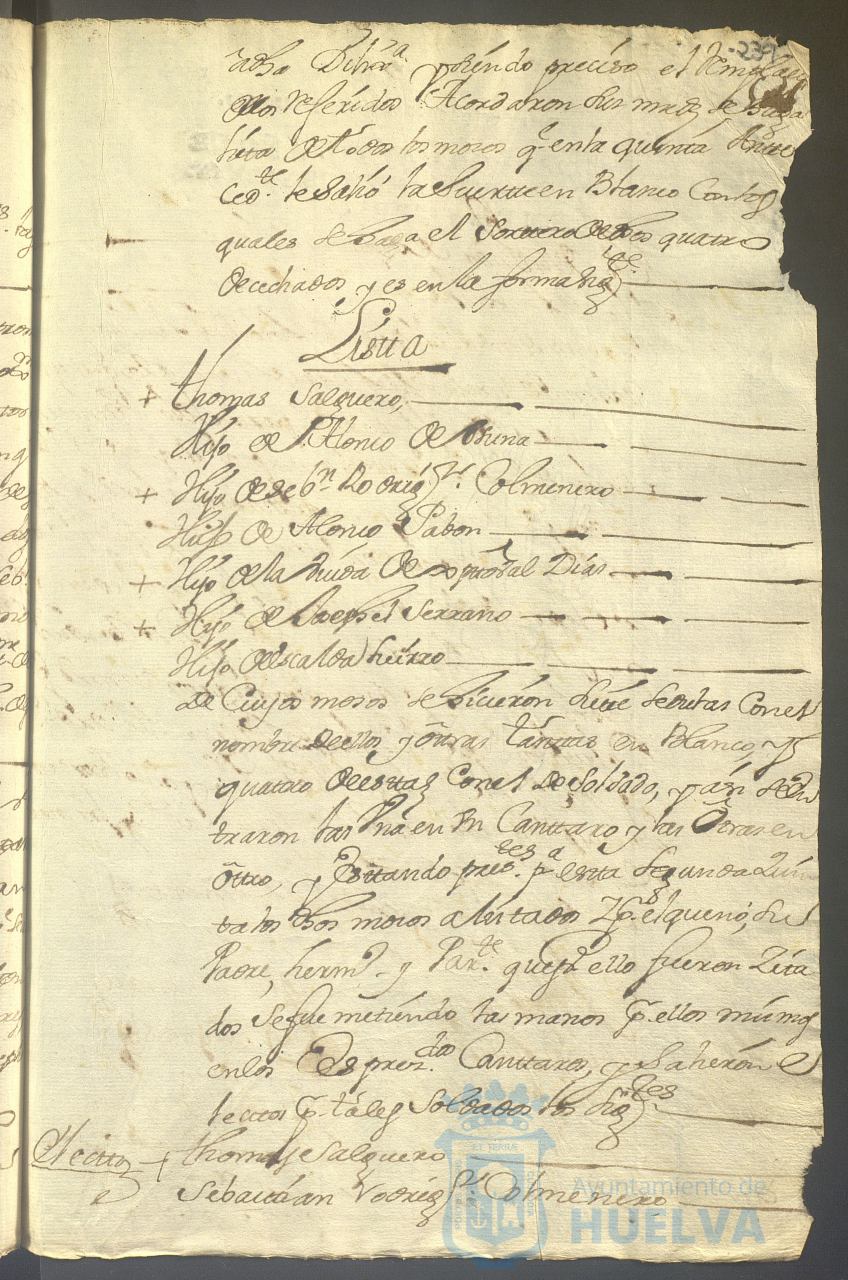 -239
dha Dilixª. y siendo preciso el
los referidos Acordaron sus mrds se haga
lista de todos los mosos q. en la quinta Ante
ced.te le salió la suerte en Blanco Con los
quales se haga el Sorteo de los quatro
desechados y es en la forma sig.te
Lista
+ thomas Salguero,
Hijo de Alonso de Osuna
+ Hijo de Seb.n Rodrig.z Colmenero
Hijo de Alonso Pabon
+ Hijo de la Viuda de Xptoval Dias
+ Hijo de Joseph el Serrano
Hijo de escalda hierro
De Cuyos mosos se hicieron siete sedulas Con el
nombre de ellos y otras tantas en Blanco, y
quatro de estas Con el de Soldado, y asi se en
traron las Unas en Un Cantaro y las Otras en
otro, y Estando pres.tes p.a esta Segunda Quin
ta los dhos mosos alistados y p. el que no, su
Padre, herm.o y Par.te que p.a ello fueron Zita
dos se fue metiendo las manos p. ellos mismos
en los Espres.dos Cantaros, y salieron E
lectos p. tales Soldados los sig.tes
Electos + thomas Salguero
Sebastian Rodrig.z Colmenero
Ayuntamiento de
HUELVA